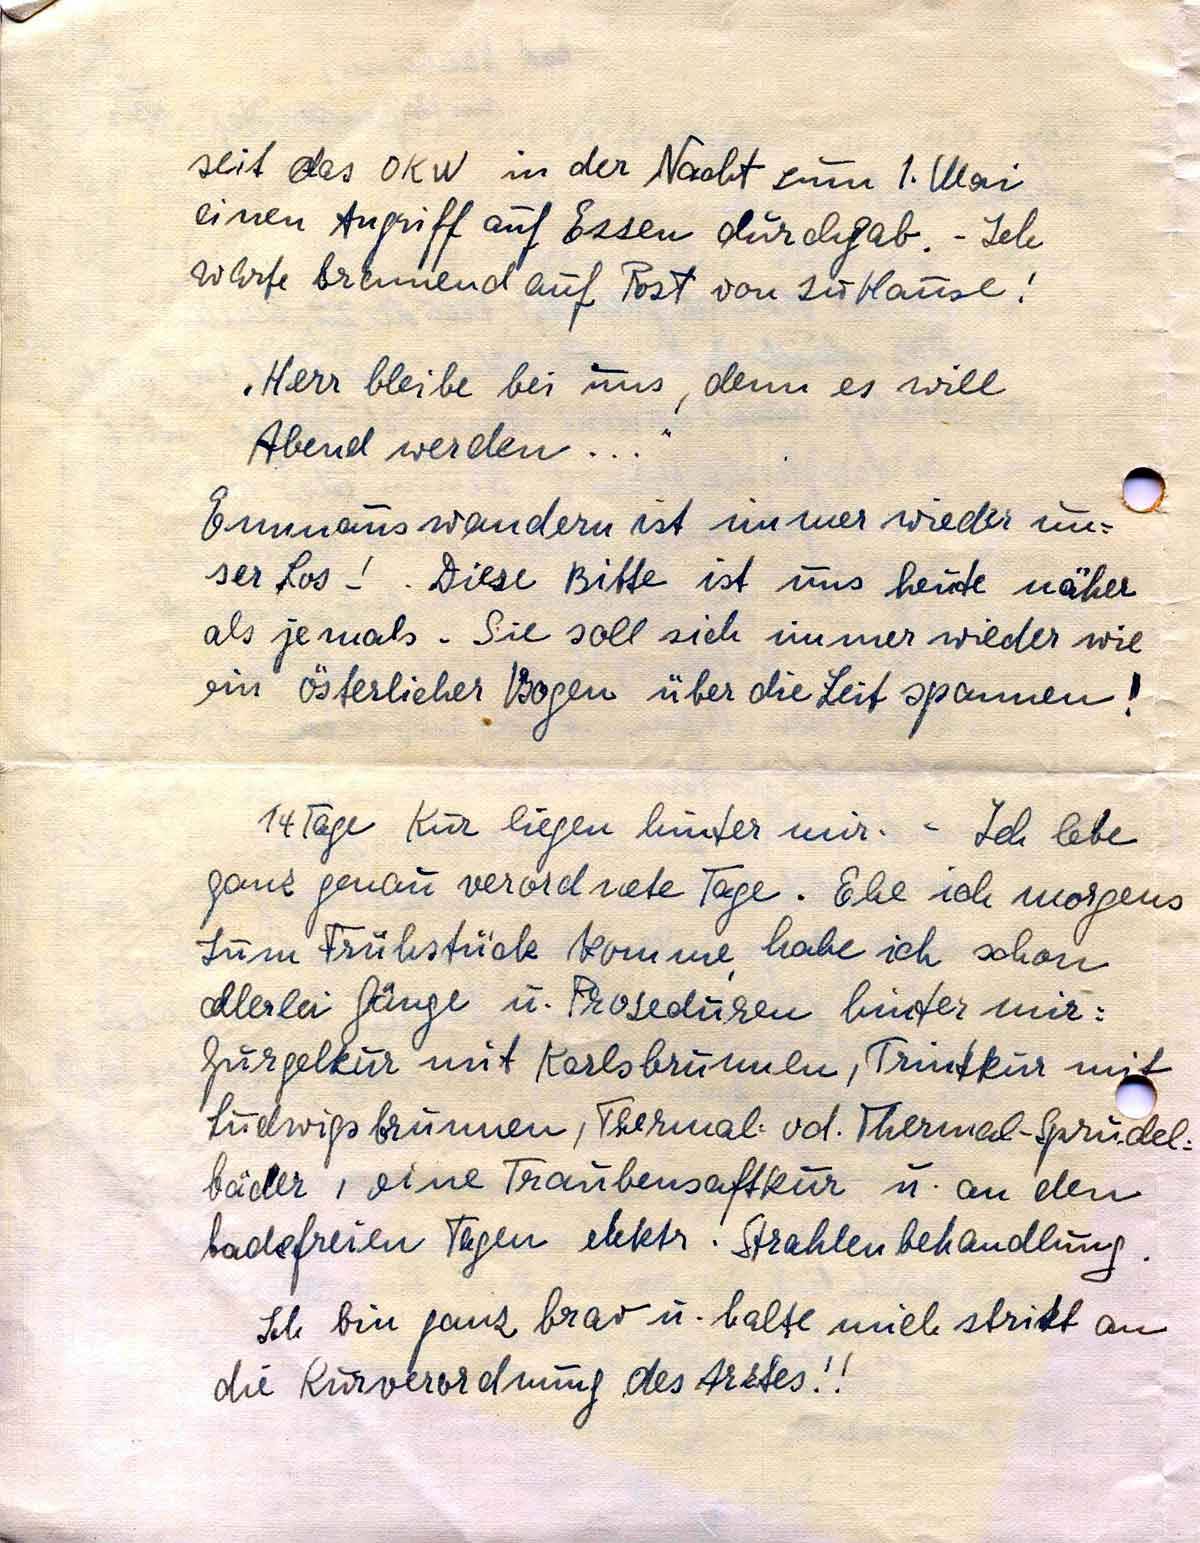 seit das OKW in der Nacht zum 1. Mai
einen Angriff auf Essen durchgab. - Ich
warte brennend auf Post von zu Hause!
„Herr bleibe bei uns, denn es will
Abend werden ..."
Emmauswandern ist immer wieder un=
ser Los! . Diese Bitte ist uns heute näher
als jemals. Sie soll sich immer wieder wie
ein österlicher Bogen über die Zeit spannen!
14 Tage Kur liegen hinter mir. - Ich lebe
ganz genau verordnete Tage. Ehe ich morgens
zum Frühstück komme, habe ich schon
allerlei Gänge u. Proseduren hinter mir:
Gurgelkur mit Karlsbrunnen, Trinkkur mit
Ludwigsbrunnen, Thermal- od. Thermal-Sprudel=
bäder, eine Traubensaftkur u. an den
badefreien Tagen elektr. Strahlenbehandlung.
Ich bin ganz brav u. halte mich strikt an
die Kurverordnung des Arztes!!